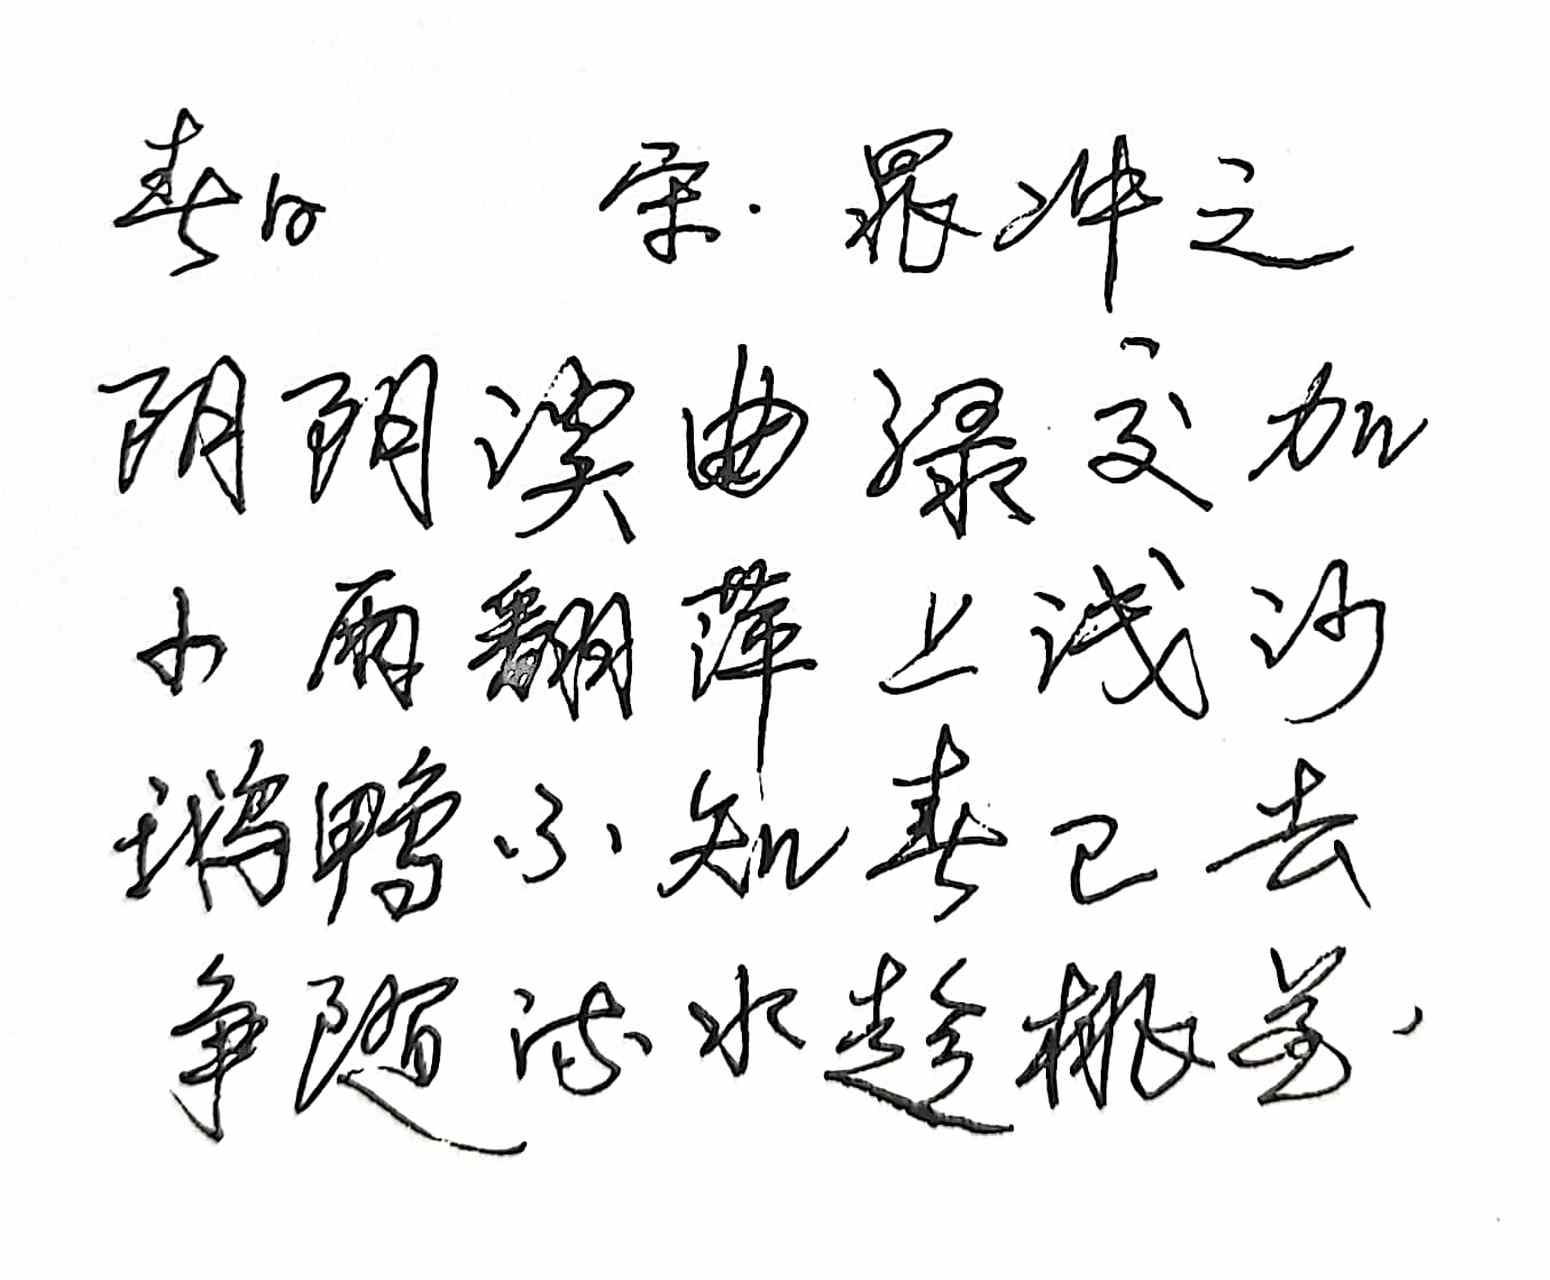 春日 宋·晁冲之
阴阴溪曲绿交加
小雨翻萍上浅沙
鹅鸭不知春已去
争随流水趁桃花